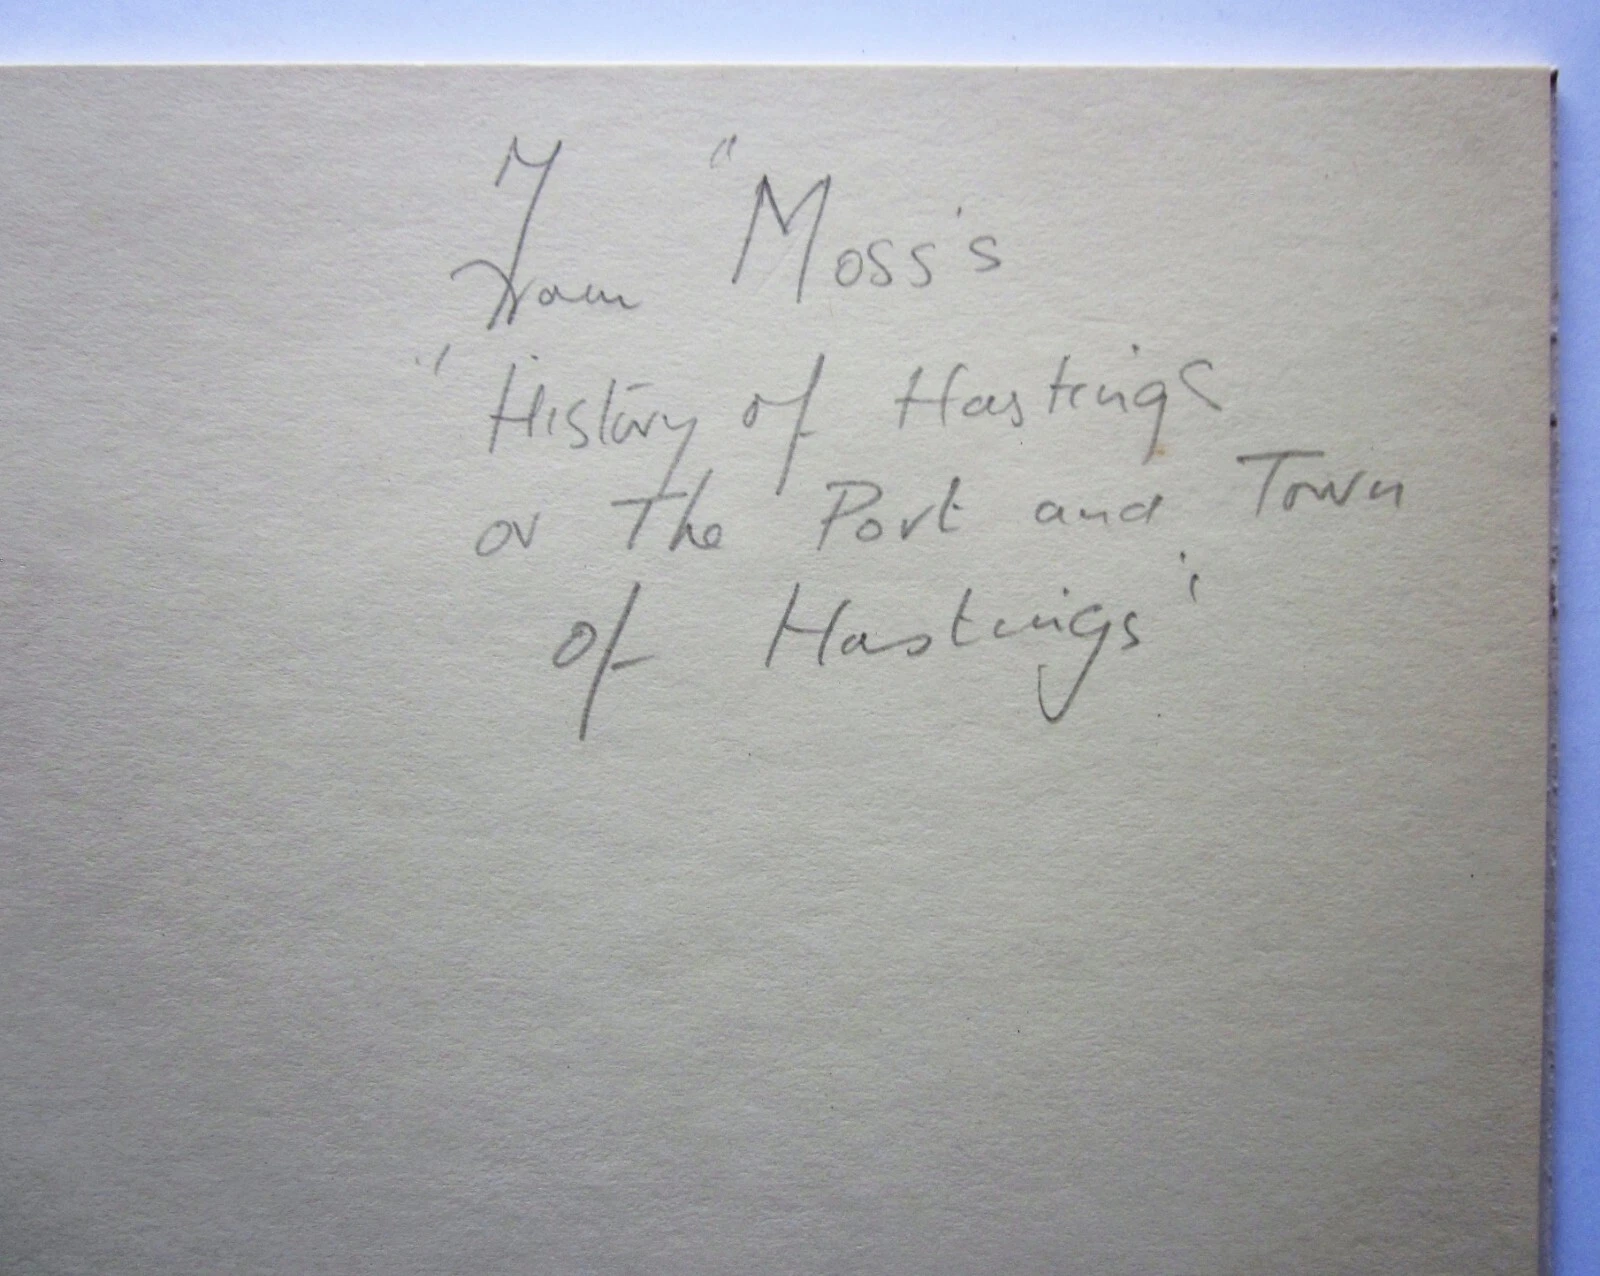 From "Moss's
"History of Hastings
or The Port and Town
of Hastings"